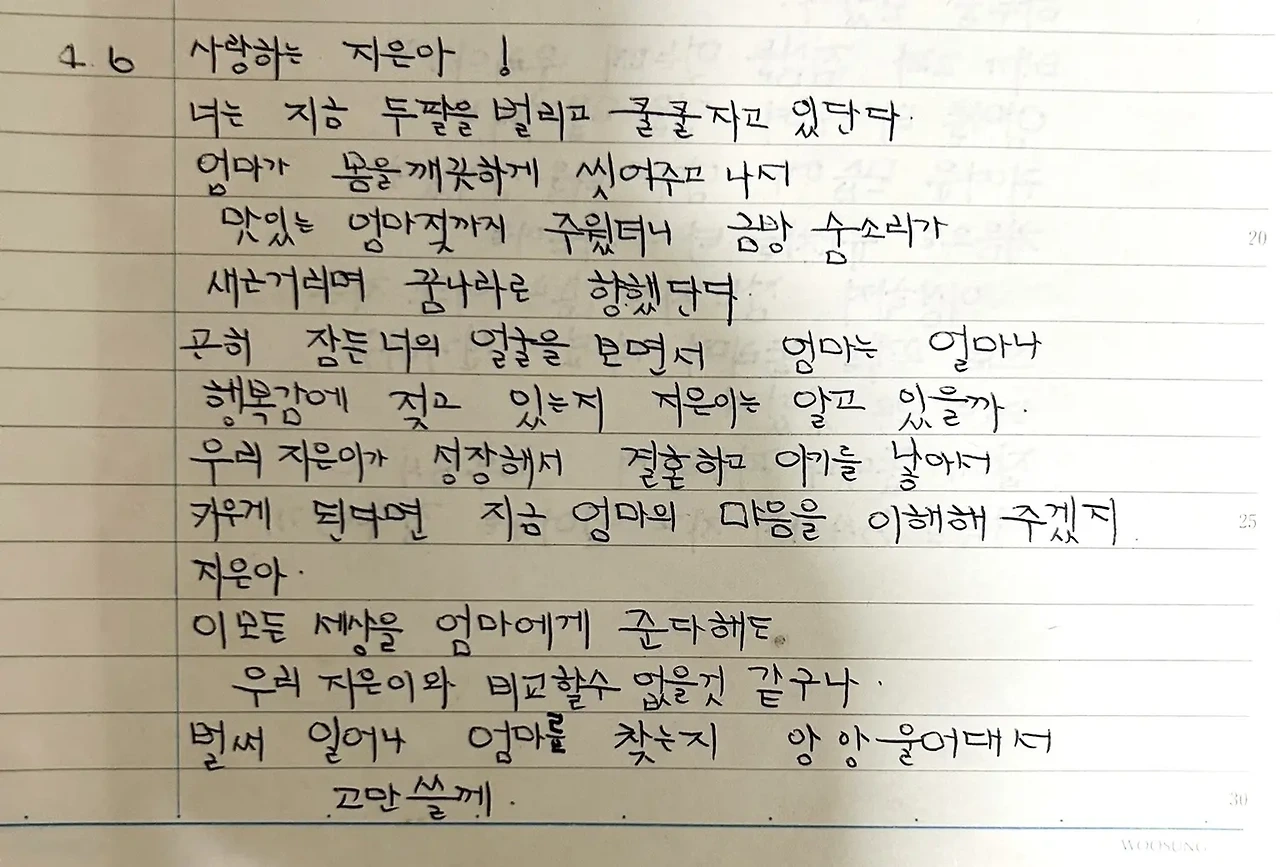 4. 6 사랑하는 지은아 !
너는 지금 두팔을 벌리고 쿨쿨 자고 있단다.
엄마가 몸을 깨끗하게 씻어주고 나서
맛있는 엄마젖까지 주웠더니 금방 숨소리가 20
새근거리며 꿈나라로 향했단다.
곤히 잠든 너의 얼굴을 보면서 엄마는 얼마나
행복감에 젖고 있는지 지은이는 알고 있을까.
우리 지은이가 성장해서 결혼하고 아기를 낳아서
키우게 된다면 지금 엄마의 마음을 이해해 주겠지. 25
지은아.
이 모든 세상을 엄마에게 준다해도
우리 지은이와 비교할수 없을것 같구나.
벌써 일어나 엄마를 찾는지 앙 앙 울어대서
고만 쓸께. 30
WOOSUNG